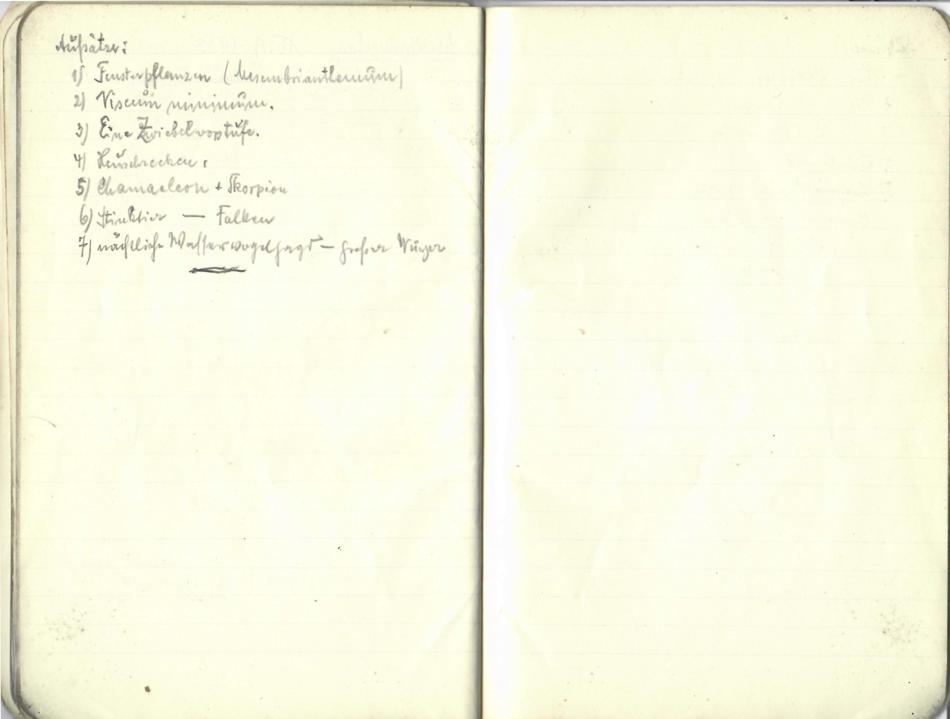 Aufsätze:
1) Fensterpflanzen (Mesembrianthemum)
2) Viscum minimum.
3) Eine
4) Heuschrecken.
5) Chamaeleon + Skorpion
6) Stinktier — Falken
7) nächtliche Wasservogeljagd — großer Würger